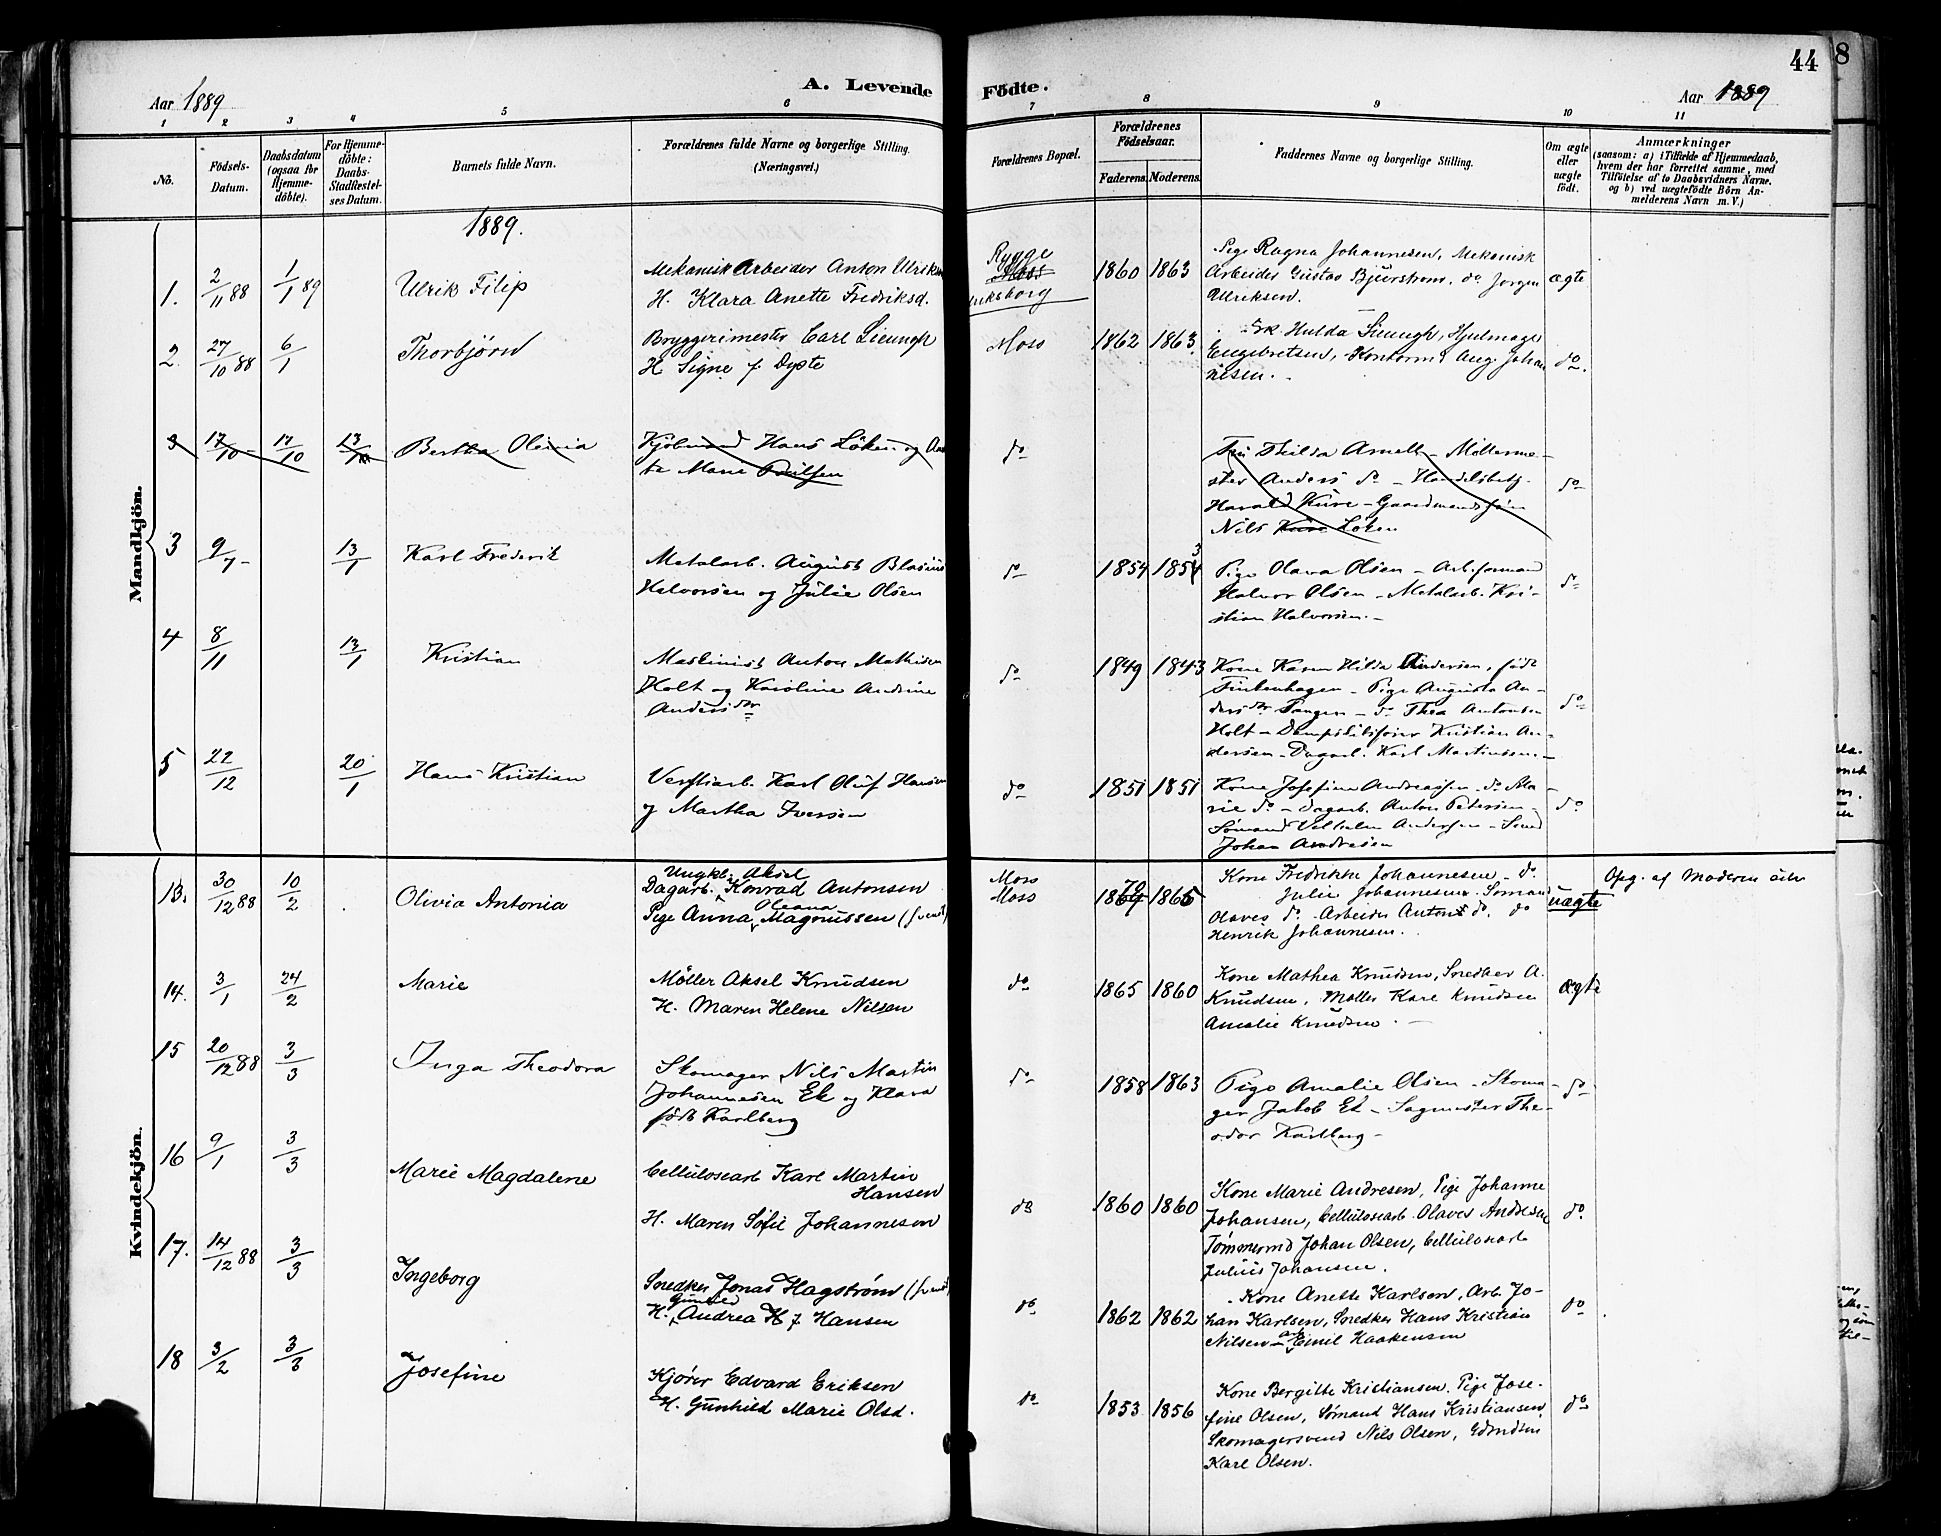 44
8
A. Levende
Födte.
Aar 1889
Aar 1889
1
2
3
4
5
6
7
8
9
10
11
No.
Födsels-
Datum.
Daabsdatum
(ogsaa for
Hjemme-
döbte).
For Hjemme-
döbte:
Daabs-
Stadfæstel-
ses Datum.
Barnets fulde Navn.
Forældrenes fulde Navne og borgerlige Stilling.
(Næringsvei.)
Forældrenes Bopæl.
Forældrenes
Födselsaar.
Faderens.
Moderens.
Faddernes Navne og borgerlige Stilling.
Om ægte
eller
uægte
födt.
Anmærkninger
(saasom: a) i Tilfælde af Hjemmedaab,
hvem der har forrettet samme, med
Tilföielse af to Daabsvidners Navne,
og b) ved uægtefödte Börn An-
melderens Navn m. V.)
Mandkjön.
1889.
1.
2/11 88
1/1 89
Ulrik Filip
Mekanisk Arbeider Anton Ulriksen
H. Klara Anette Fredriksd.
Rygge
Moss
1860
1863
Pige Ragna Johannesen, Mekanisk
Arbeider Gustav Bjurstrøm, do. Jørgen
Ulriksen.
ægte
2.
27/10 88
6/1
Thorbjørn
Bryggerimester Carl Lieungh
H. Signe f. Dyste
Moss
1862
1863
Frk. Hulda Lieungh, Hjulmager
Engebretsen, Kontorm. Aug. Johan
nesen.
do.
3
17/10
17/10
13/10
Bertha Olivia
Kjøbmand Hans Løken og
Marie Poulsen
do
Thilda Arnell - Møllerme-
ster Anders do - Handelsbetj.
Harald Kure - Gaardmandsøn
Nils Kure Løken
do
3
9/7
13/1
Karl Frederik
Metalarb. August Blasius
Halvorsen og Julie Olsen
do
1854
1854 3
Pige Olava Olsen - Arb.formand
Halvor Olsen - Metalarb. Kri-
stian Halvorsen. -
do
4
8/11
13/1
Kristian
Maskinist Anton Mathisen
Holt og Karoline Andrine
Andersdtr
do
1849
1843
Kone Karen Hilda Andersen, født
Finkenhagen - Pige Augusta An-
dersdtr Tangen - do Thea Antonsen
Holt - Dampskibsfører Kristian An-
dersen - Dagarb. Karl Martinsen. -
do
5
22/12
20/1
Hans Kristian
Verftsarb. Karl Oluf Hansen
og Martha Iversen
do
1851
1851
Kone Josefine Andreassen - do Ma-
rie do - Dagarb. Anton Petersen -
Sømand Vilhelm Andersen -
Johan Andresen
do
Kvindekjön.
13.
30/12 88
10/2
Olivia Antonia
Ungkl. Aksel
Dagarb. Konrad Antonsen
Oleana
Pige Anna Magnussen (svensk)
Moss
Moss
1867 70
1865
Kone Fredrikke Johannesen - do.
Julie Johannesen. Sømand
Olaves do. Arbeider Anton do. do
Henrik Johannesen.
uægte
Opg. af Moderen
14.
3/1
24/2
Marie
Møller Aksel Knudsen
H. Maren Helene Nilsen
do
1865
1860
Kone Mathea Knudsen, Snedker A.
Knudsen, Møller Karl Knudsen
Amalie Knudsen.
ægte
15
20/12 88
3/3
Inga Theodora
Skomager Nils Martin
Johannesen Ek og Klara
født Karlberg
do
1858
1863
Pige Amalie Olsen - Skoma-
ger Jakob Ek - Sagmester The-
odor Karlberg -
do
16
9/1
3/3
Marie Magdalene
Cellulosearb Karl Martin
Hansen
H. Maren Sofie Johannesen
do
1860
1860
Kone Marie Andresen, Pige Johanne
Johansen, Cellulosearb. Olaves Andresen
Tømmermd Johan Olsen, Cellulosearb
Julius Johansen.
do.
17.
14/12 88
3/3
Ingeborg
Snedker Jonas Hagstrøm (svensk)
Gunhild
H. Andrea H f Hansen
do
1862
1862
Kone Anette Karlsen, Arb. Jo-
han Karlsen, Snedker Hans Kristian
Nilsen - arb Emil Haakensen
do
18
3/2
3/3
Josefine
Kjører Edvard Eriksen
H. Gunhild Marie Olsd.
do
1853
1856
Kone Bergitte Kristiansen, Pige Jose-
fine Olsen, Sømand Hans Kristiansen,
Skomagersvend Nils Olsen,
Karl Olsen.
do